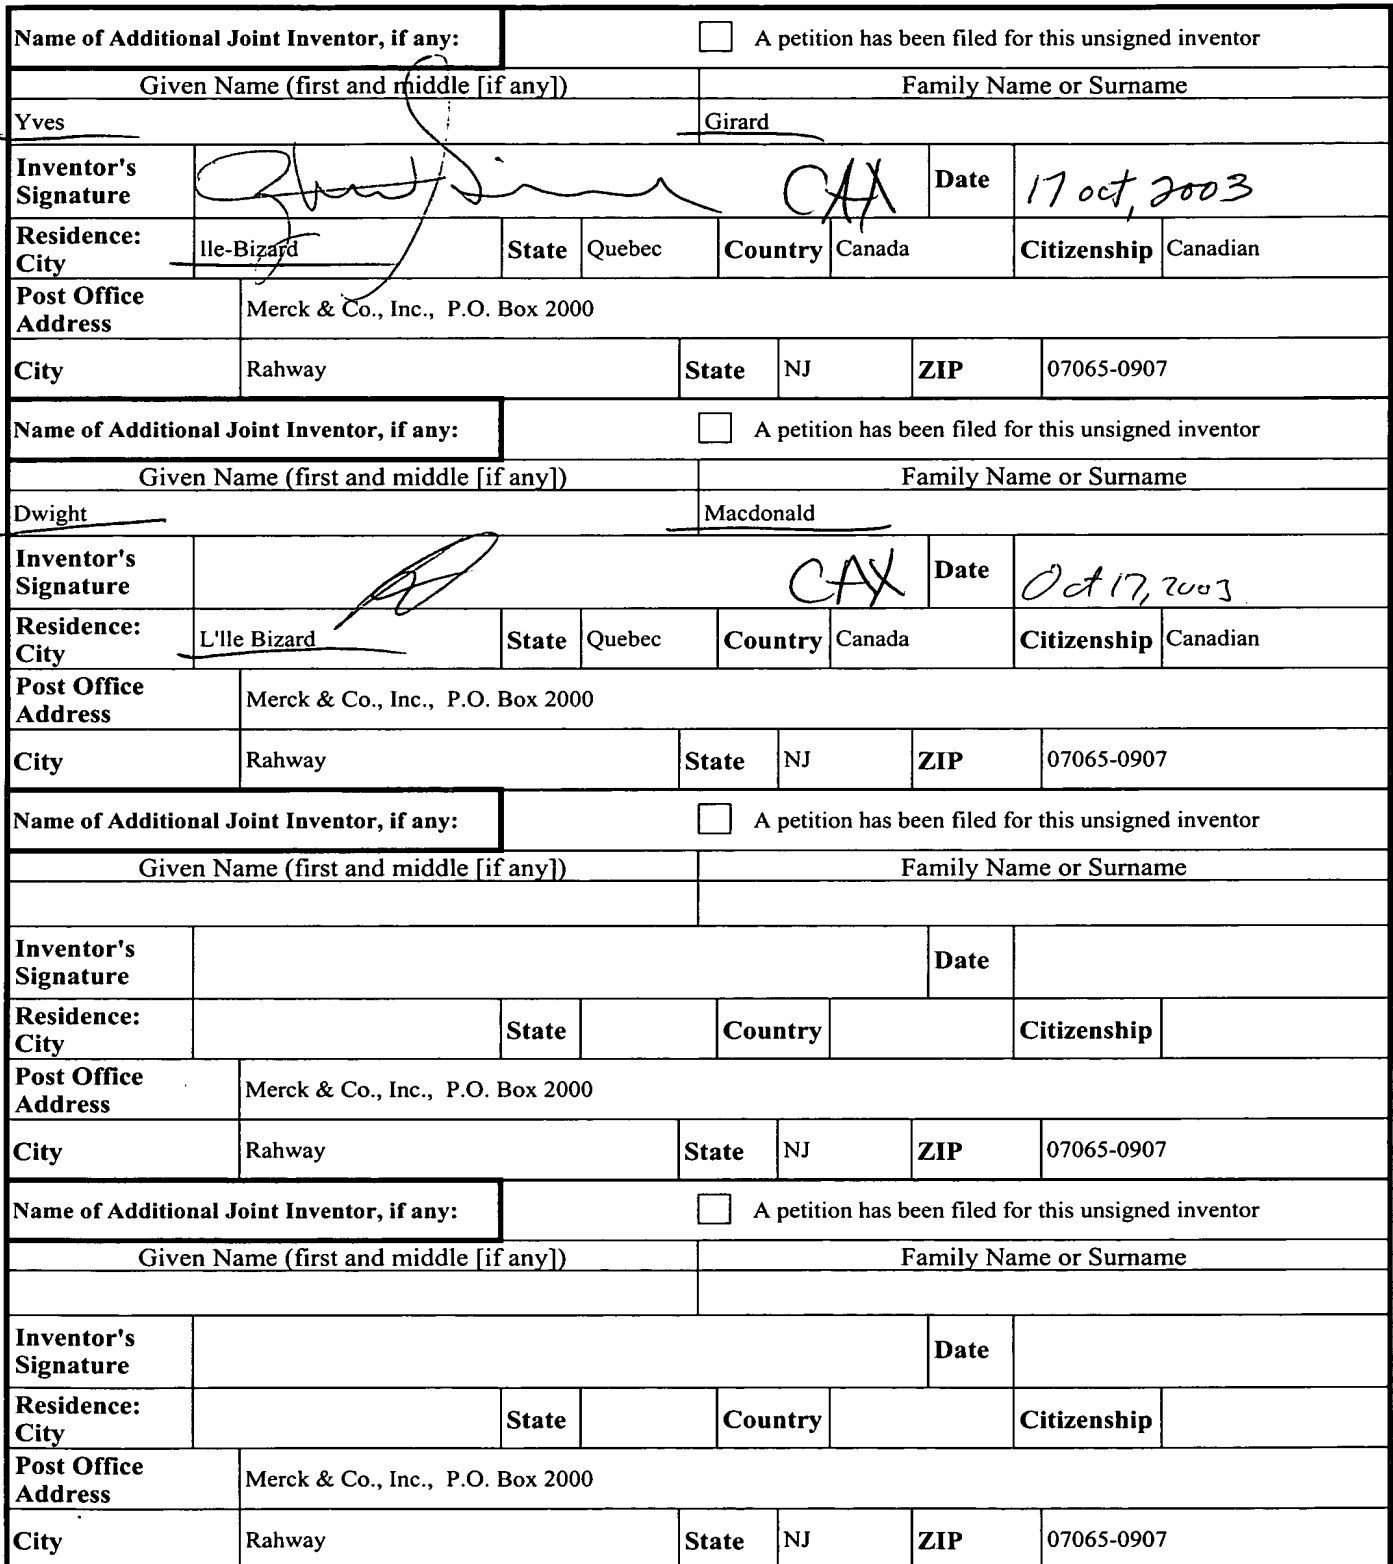 Name of Additional Joint Inventor, if any: A petition has been filed for this unsigned inventor
Given Name (first and middle [if any]) Family Name or Surname
Yves Girard
Inventor's Signature CAX Date 17 oct, 2003
Residence: City Ile-Bizard State Quebec Country Canada Citizenship Canadian
Post Office Address Merck & Co., Inc., P.O. Box 2000
City Rahway State NJ ZIP 07065-0907
Name of Additional Joint Inventor, if any: A petition has been filed for this unsigned inventor
Given Name (first and middle [if any]) Family Name or Surname
Dwight Macdonald
Inventor's Signature CAX Date Oct 17, 2003
Residence: City L'Ile Bizard State Quebec Country Canada Citizenship Canadian
Post Office Address Merck & Co., Inc., P.O. Box 2000
City Rahway State NJ ZIP 07065-0907
Name of Additional Joint Inventor, if any: A petition has been filed for this unsigned inventor
Given Name (first and middle [if any]) Family Name or Surname
Inventor's Signature Date
Residence: City State Country Citizenship
Post Office Address Merck & Co., Inc., P.O. Box 2000
City Rahway State NJ ZIP 07065-0907
Name of Additional Joint Inventor, if any: A petition has been filed for this unsigned inventor
Given Name (first and middle [if any]) Family Name or Surname
Inventor's Signature Date
Residence: City State Country Citizenship
Post Office Address Merck & Co., Inc., P.O. Box 2000
City Rahway State NJ ZIP 07065-0907